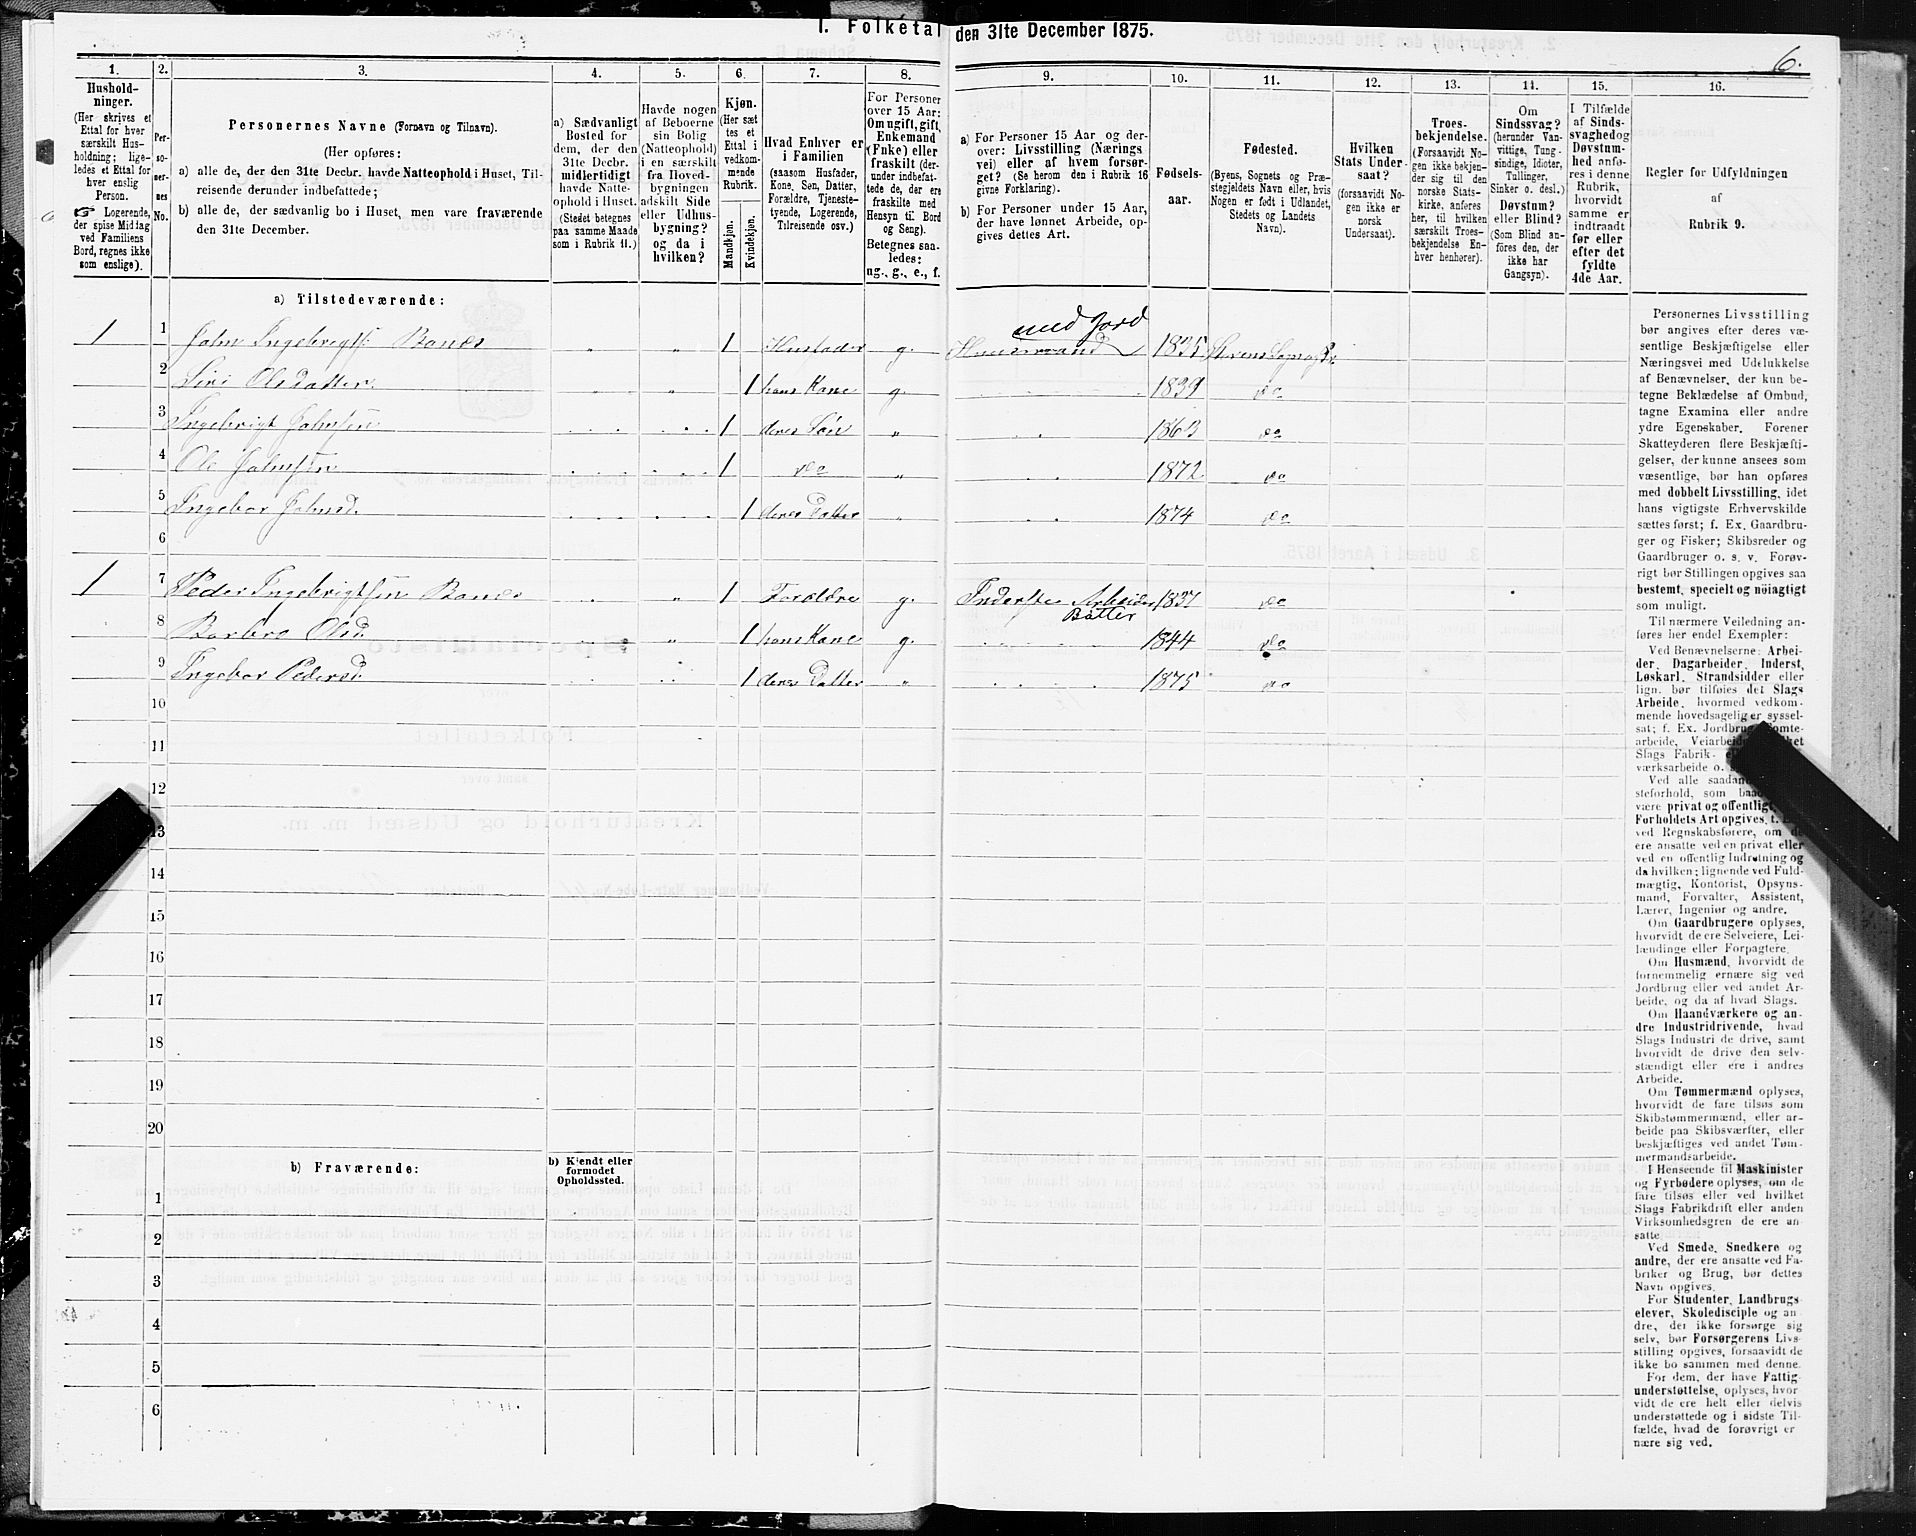 I. Folketal den 31te December 1875.
6.
1. 2. 3. 4. 5. 6. 7. 8. 9. 10. 11. 12. 13. 14. 15. 16.
Hushold-
ninger.
(Her skrives et
Ettal for hver
særskilt Hus-
holdning; lige-
ledes et Ettal for
hver enslig
Person.
☞ Logerende,
der spise Middag
ved Familiens
Bord, regnes ikke
som enslige).
Per-
so-
ner-
nes
No.
Personernes Navne (Fornavn og Tilnavn).
(Her opføres:
a) alle de, der den 31te Decbr. havde Natteophold i Huset, Til-
reisende derunder indbefattede;
b) alle de, der sædvanlig bo i Huset, men vare fraværende
den 31te December.
a) Sædvanligt
Bosted for
dem, der den
31te Decbr.
midlertidigt
havde Natte-
ophold i Huset.
(Stedet betegnes
paa samme Maade
som i Rubrik 11.)
Havde nogen
af Beboerne
sin Bolig
(Natteophold)
i en særskilt
fra Hoved-
bygningen
adskilt Side
eller Udhus-
bygning?
og da i
hvilken?
Kjøn.
(Her sæt-
tes et
Ettal i
vedkom-
mende
Rubrik.
Mandkjøn.
Kvindekjøn.
Hvad Enhver er
i Familien
(saasom Husfader,
Kone, Søn, Datter,
Forældre, Tjeneste-
tyende, Logerende,
Tilreisende osv.)
For Personer
over 15 Aar:
Om ugift, gift,
Enkemand
(Enke) eller
fraskilt (der-
under indbefat-
tede de, der ere
fraskilte med
Hensyn til Bord
og Seng).
Betegnes saa-
ledes:
ug., g., e., f.
a) For Personer 15 Aar og der-
over: Livsstilling (Nærings
vei) eller af hvem forsør-
get? (Se herom den i Rubrik 16
givne Forklaring).
b) For Personer under 15 Aar,
der have lønnet Arbeide, op-
gives dettes Art.
Fødsels-
aar.
Fødested.
(Byens, Sognets og Præ-
stegjeldets Navn eller, hvis
Nogen er født i Udlandet,
Stedets og Landets
Navn).
Hvilken
Stats Under-
saat?
(forsaavidt No-
gen ikke er
norsk
Undersaat).
Troes-
bekjendelse.
(Forsaavidt No-
gen ikke bekjen-
der sig til den
norske Stats-
kirke, anføres
her, til hvilken
særskilt Troes-
bekjendelse En-
hver henhører).
Om
Sindssvag?
(herunder Van-
vittige, Tung-
sindige, Idioter,
Tullinger,
Sinker o. desl.)
Døvstum?
eller Blind?
(Som Blind an-
føres den, der
ikke har
Gangsyn).
I Tilfælde
af Sinds-
svaghed og
Døvstum-
hed anfø-
res i denne
Rubrik,
hvorvidt
samme er
indtraadt
før eller
efter det
fyldte
4de Aar.
Regler for Udfyldningen
af
Rubrik 9.
a) Tilstedeværende:
med Jord
1 1 John Ingebrigts. Banes " " 1 Husfader g. Huusmand 1835 Størens Sogn
2 Siri Olsdatter " " 1 hans Kone g. 1839 do
3 Ingebrigt Johnsen 1 deres Søn " 1863 do
4 Ole Johnsen 1 do " 1872 do
5 Ingebor Johnsd. 1 deres Datter " 1874 do
6
1 7 Peder Ingebrigtsen Banes " " 1 Forældre g. Inderste Arbeider 1837 do
8 Barbro Olsd. " " 1 hans Kone g. 1844 do
9 Ingebor Pedersd. 1 deres Datter " 1875 do
10
11
12
13
14
15
16
17
18
19
20
b) Fraværende:
b) Kjendt eller
formodet
Opholdssted.
1
2
3
4
5
6
Personernes Livsstilling
bør angives efter deres væ-
sentlige Beskjæftigelse eller
Næringsvei med Udelukkelse
af Benævnelser, der kun be-
tegne Beklædelse af Ombud,
tagne Examina eller andre
ydre Egenskaber. Forener
Skatteyderen flere Beskjæfti-
gelser, der kunne ansees som
væsentlige, bør han opføres
med dobbelt Livsstilling, idet
hans vigtigste Erhvervskilde
sættes først; f. Ex. Gaardbru-
ger og Fisker; Skibsreder og
Gaardbruger o. s. v. Forøv-
rigt bør Stillingen opgives saa
bestemt, specielt og nöiagtigt
som muligt.
Til nærmere Veiledning an-
føres her endel Exempler:
Ved Benævnelserne: Arbei-
der, Dagarbeider, Inderst,
Løskarl, Strandsidder eller
lign. bør tilføies det Slags
Arbeide, hvormed vedkom-
mende hovedsagelig er syssel-
sat; f. Ex. Jordbrug, Tomte-
arbeide, Veiarbeide,
Slags Fabrik-
værksarbeide o.
Ved alle saadan
steforhold, som
være privat og offentligt,
Forholdets Art opgives,
ved Regnskabsførere, om de
ere ansatte ved en privat eller
ved en offentlig Indretning og
da hvilken; lignende ved Fuld-
mægtig, Kontorist, Opsyns-
mand, Forvalter, Assistent,
Lærer, Ingeniør og andre.
Om Gaardbrugere oplyses,
hvorvidt de ere Selveiere, Lei-
lændinge eller Forpagtere.
Om Husmænd, hvorvidt de
fornemmelig ernære sig ved
Jordbrug eller ved andet Ar-
beide, og da af hvad Slags.
Om Haandværkere og an-
dre Industridrivende, hvad
Slags Industri de drive, samt
hvorvidt de drive den selv-
stændigt eller ere i andres
Arbeide.
Om Tømmermænd oplyses,
hvorvidt de fare tilsøs som
Skibstømmermænd, eller ar-
beide paa Skibsværfter, eller
beskjæftiges ved andet Tøm-
mermandsarbeide.
I Henseende til Maskinister
og Fyrbødere oplyses, om de
fare tilsøs eller ved hvilket
Slags Fabrikdrift eller anden
Virksomhedsgren de ere an-
satte.
Ved Smede, Snedkere og
andre, der ere ansatte ved Fa-
briker og Brug, bør dettes
Navn opgives.
For Studenter, Landbrugs-
elever, Skoledisciple og an-
dre, der ikke forsørge sig
selv, bør Forsørgerens Livs-
stilling opgives, forsaavidt de
ikke bo sammen med denne.
For dem, der have Fattig-
understøttelse, oplyses, hvor-
vidt de ere helt eller delvis
understøttede og i sidste Til-
fælde, hvad de forøvrigt er-
nære sig ved.